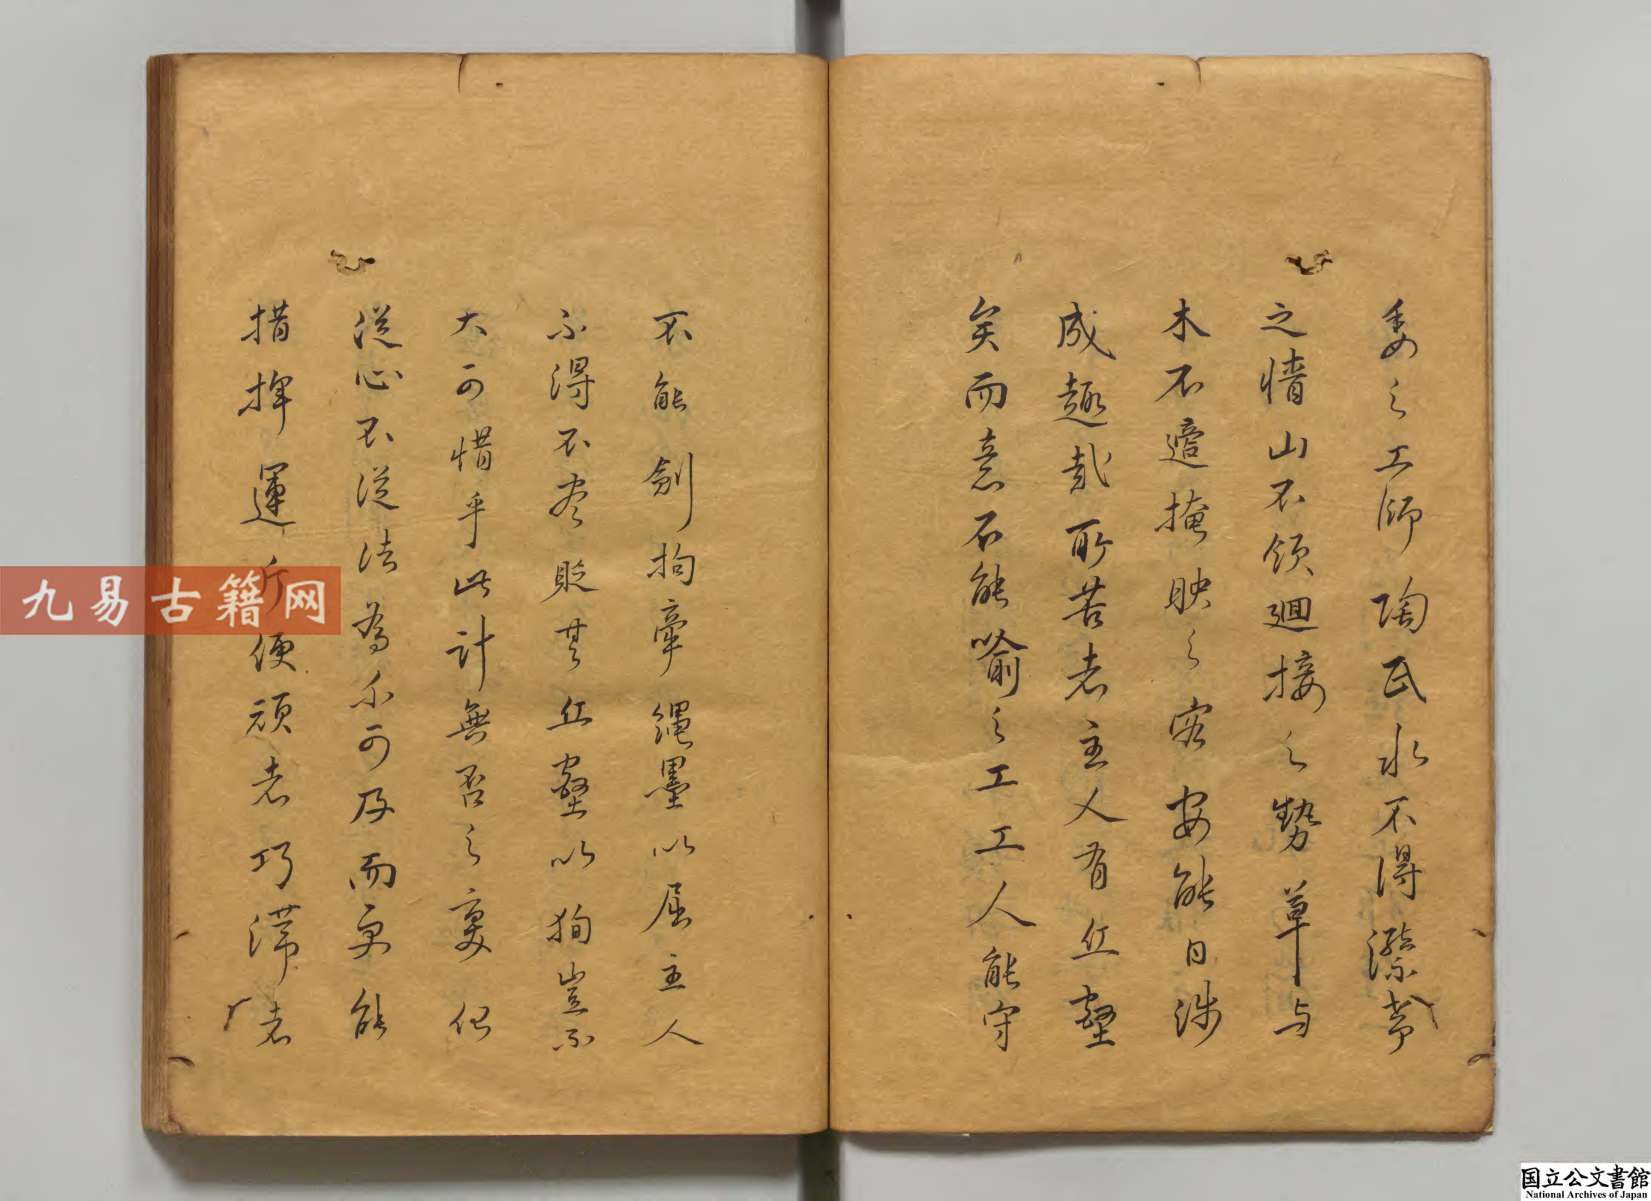 委之工師陶氏水不得瀠帯
之情山不領廻接之勢草与
木不適掩映之容安能日涉
成趣哉所苦者主人有丘壑
矣而意不能喻之工工人能守
不能創拘牽繩墨以屈主人
不得不尽貶其丘壑以狥豈不
大可惜乎此計無否之変化
従心不従法為不可及而更能
指揮運斤使頑者巧滞者
九易古籍网
国立公文書館
National Archives of Japan